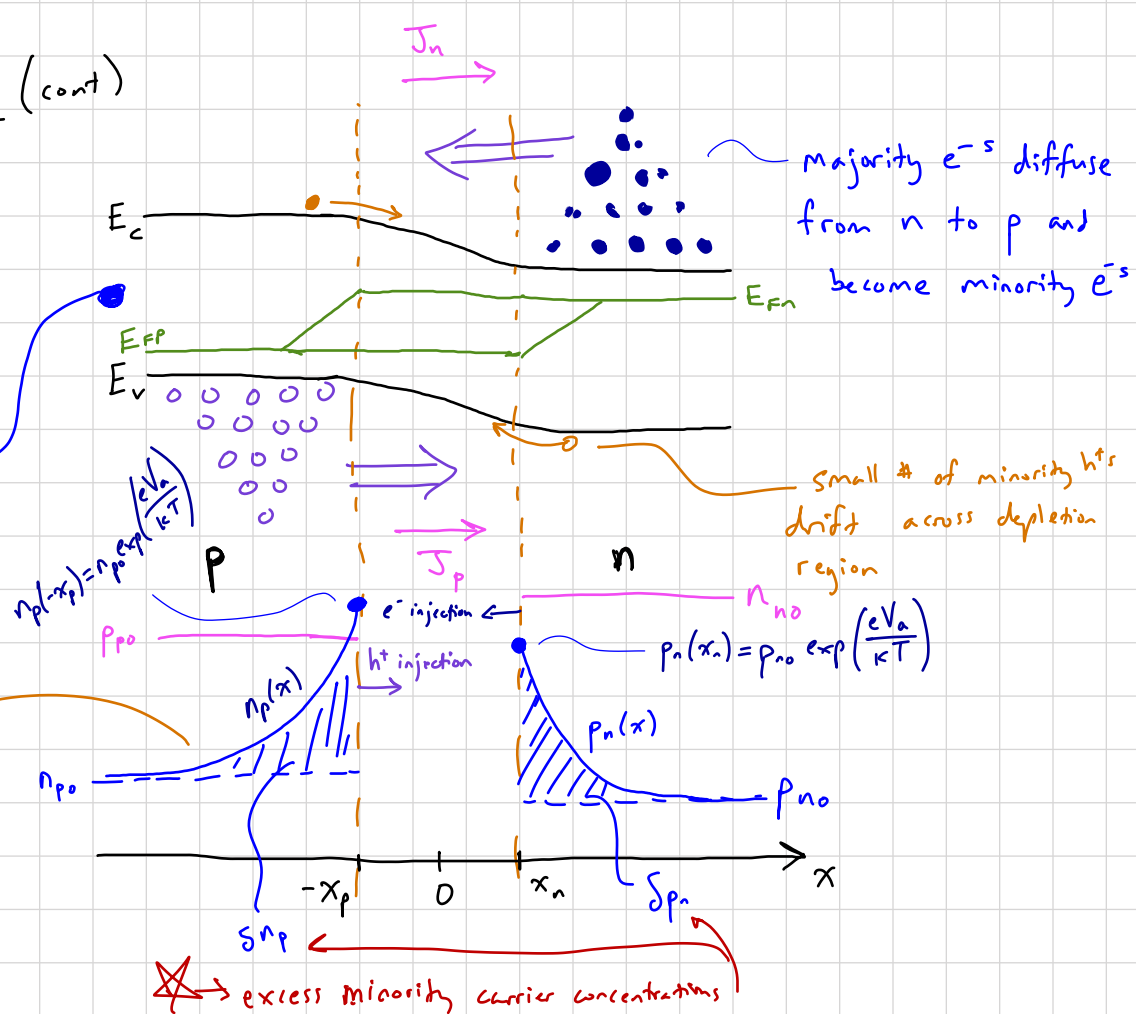 (cont)
Jn
majority e⁻s diffuse
from n to p and
become minority e⁻s
Ec
EFn
EFp
Ev
small # of minority h⁺s
drift across depletion
region
np(-xp) = npo exp(eVa/kT)
p
Jp
n
nno
e⁻ injection ←
ppo
h⁺ injection
→
pn(xn) = pno exp(eVa/kT)
np(x)
pn(x)
npo
pno
-xp
0
xn
x
δnp
δpn
→ excess minority carrier concentrations